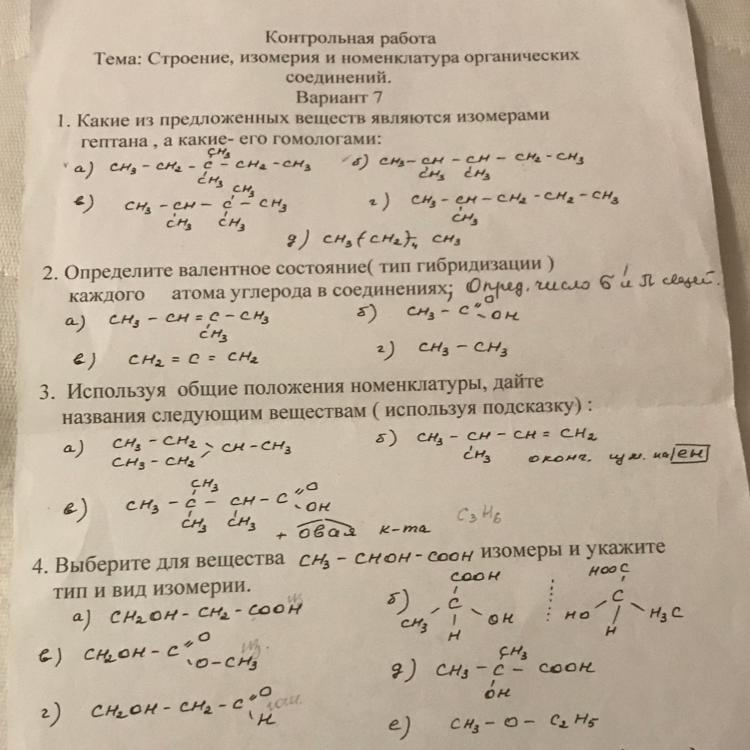 Контрольная работа
Тема: Строение, изомерия и номенклатура органических
соединений.
Вариант 7
1. Какие из предложенных веществ являются изомерами
гептана , а какие- его гомологами:
CH3
а) CH3 - CH2 - C - CH2 - CH3 б) CH3 - CH - CH - CH2 - CH3
CH3 CH3 CH3
CH3
в) CH3 - CH - C - CH3 г) CH3 - CH - CH2 - CH2 - CH3
CH3 CH3 CH3
д) CH3 (CH2)4 CH3
2. Определите валентное состояние( тип гибридизации )
каждого атома углерода в соединениях; Опред. число б и П связей.
а) CH3 - CH = C - CH3 б) CH3 - C = O - OH
CH3
в) CH2 = C = CH2 г) CH3 - CH3
3. Используя общие положения номенклатуры, дайте
названия следующим веществам ( используя подсказку) :
а) CH3 - CH2 > CH - CH3 б) CH3 - CH - CH = CH2
CH3 - CH2 CH3 оконч. на ен
CH3
в) CH3 - C - CH - C = O OH
CH3 CH3 + овая к-та C3H6
4. Выберите для вещества CH3 - CHOH - COOH изомеры и укажите
тип и вид изомерии.
а) CH2OH - CH2 - COOH из
б) COOH HOOC
C C
CH3 OH HO H3C
H H
в) CH2OH - C = O O - CH3 из.
CH3
д) CH3 - C - COOH
OH
г) CH2OH - CH2 - C = O H
е) CH3 - O - C2H5